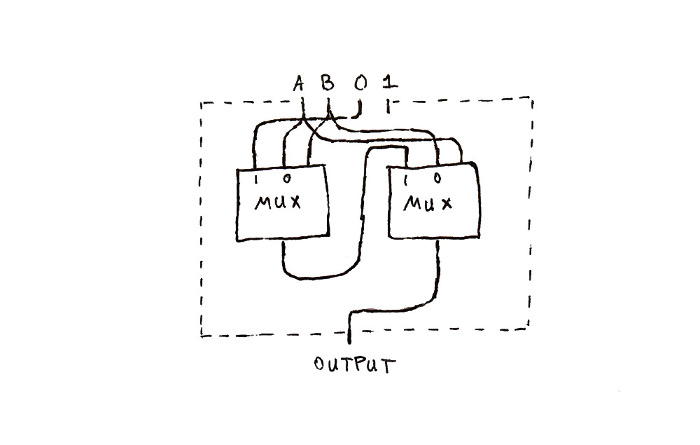 A B 0 1
1 0
MUX
1 0
MUX
OUTPUT